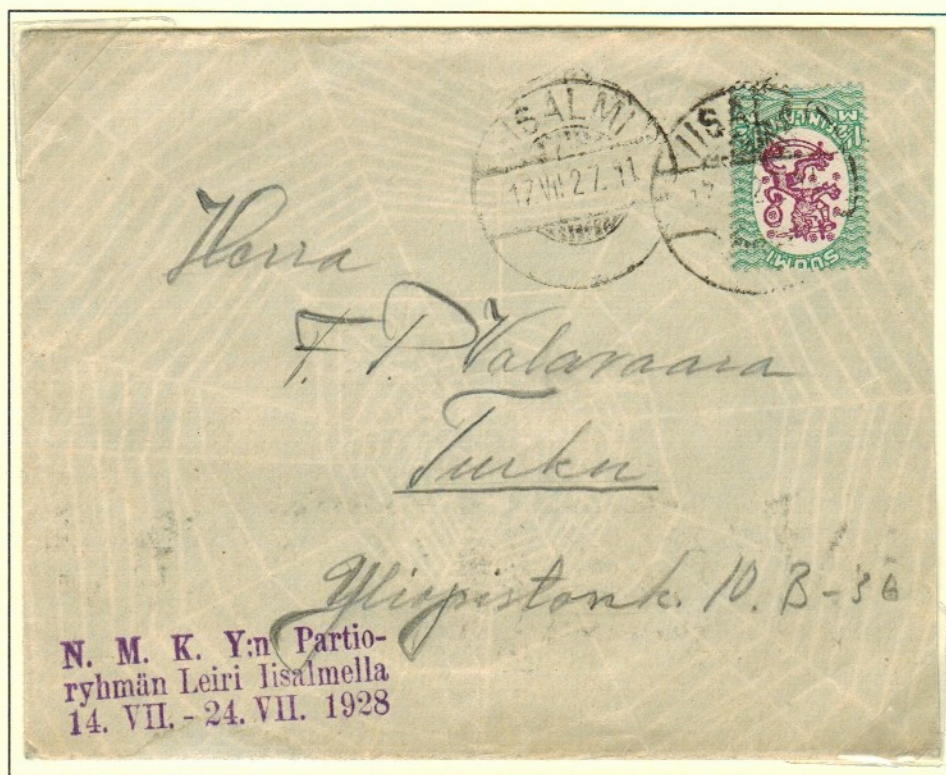 IISALMI
17.VII.27.11
IISAL
SUOMI
Herra
F. P. Valavaara
Turku
Yliopistonk. 10. B-36
N. M. K. Y:n Partio-
ryhmän Leiri Iisalmella
14. VII. - 24. VII. 1928